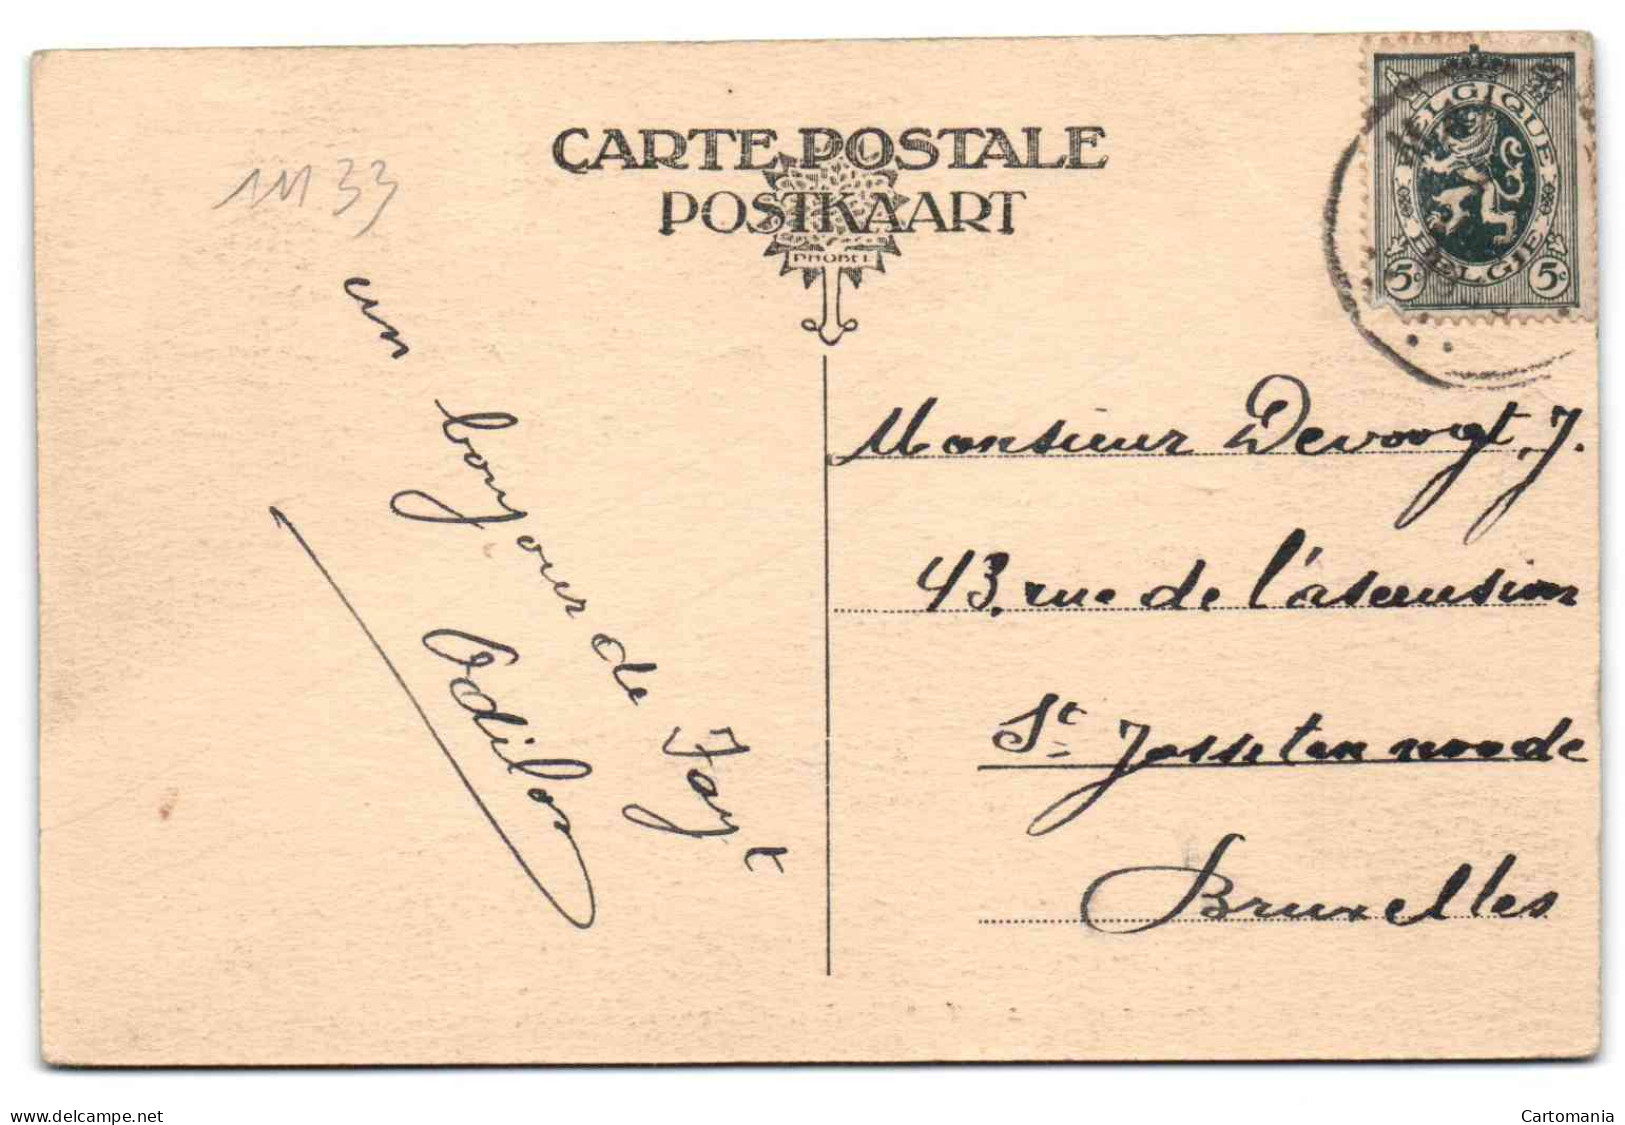 CARTE POSTALE
POSTKAART
PHOBEL
BELGIQUE
BELGIË
5c 5c
33
un
bonjour de
Fayt
Odilon
Monsieur Devoogt, J.
43, rue de l'ascension
St Josse ten noode
Bruxelles
www.delcampe.net
Cartomania